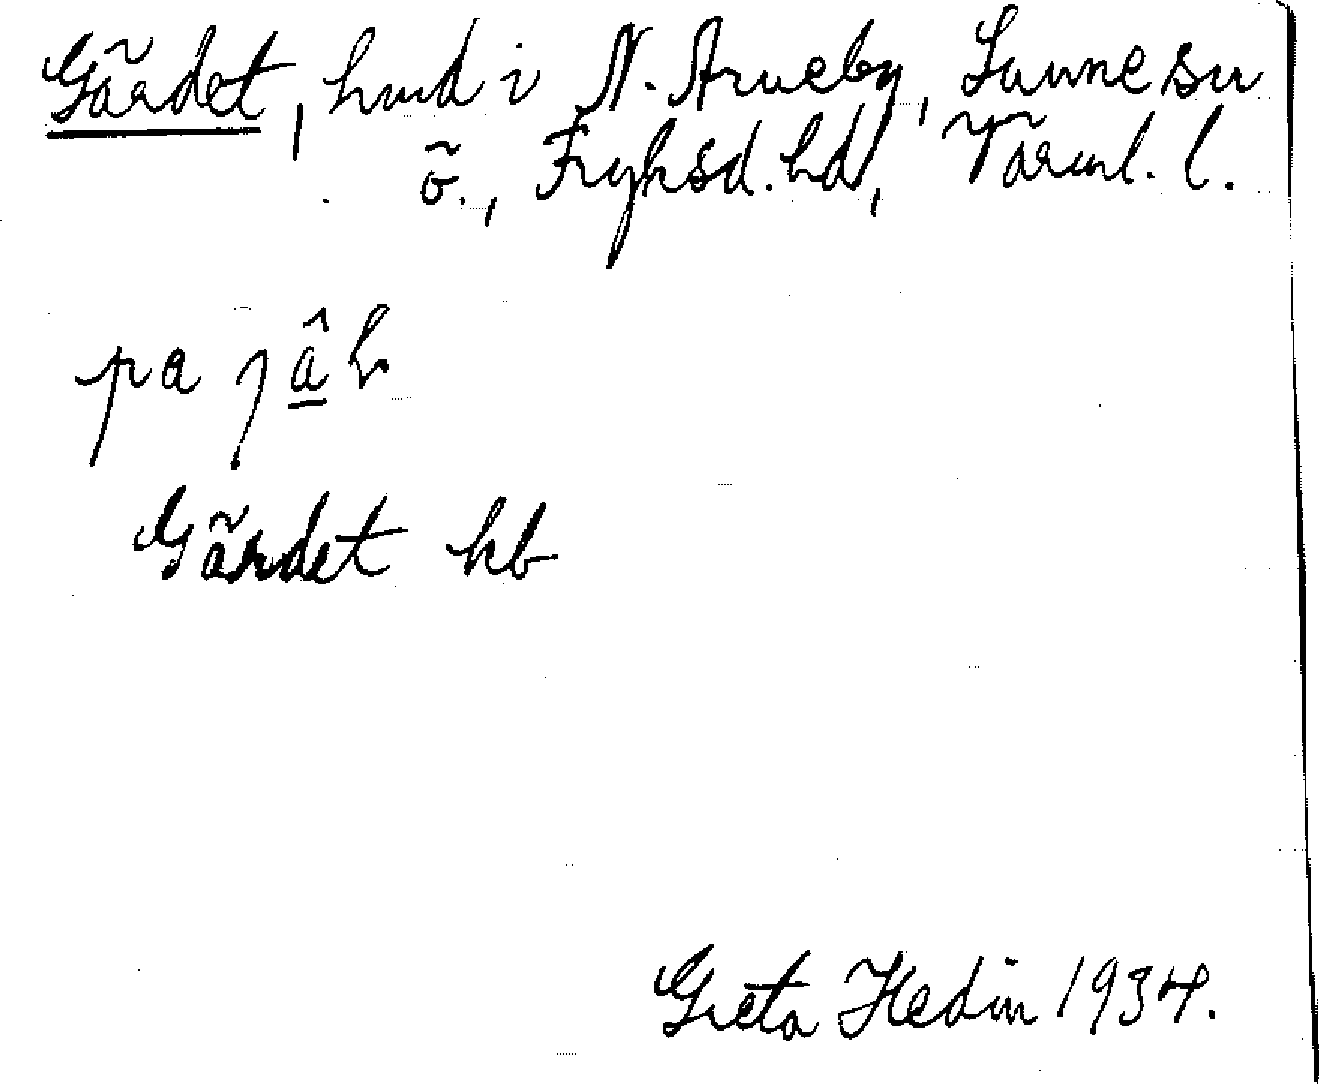 Gärdet, hmd i N. Arneby, Sunne sn
ö., Fryksd. hd, Värml. l.
pa jâ̱ɫ
Gärdet kb
Greta Hedin 1934.